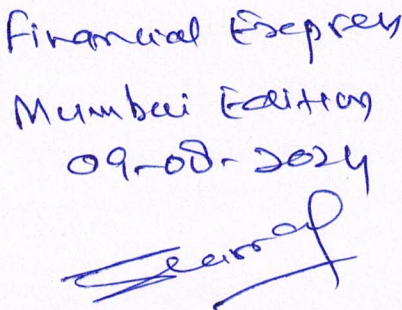 Financial Express
Mumbai Edition
09-08-2024